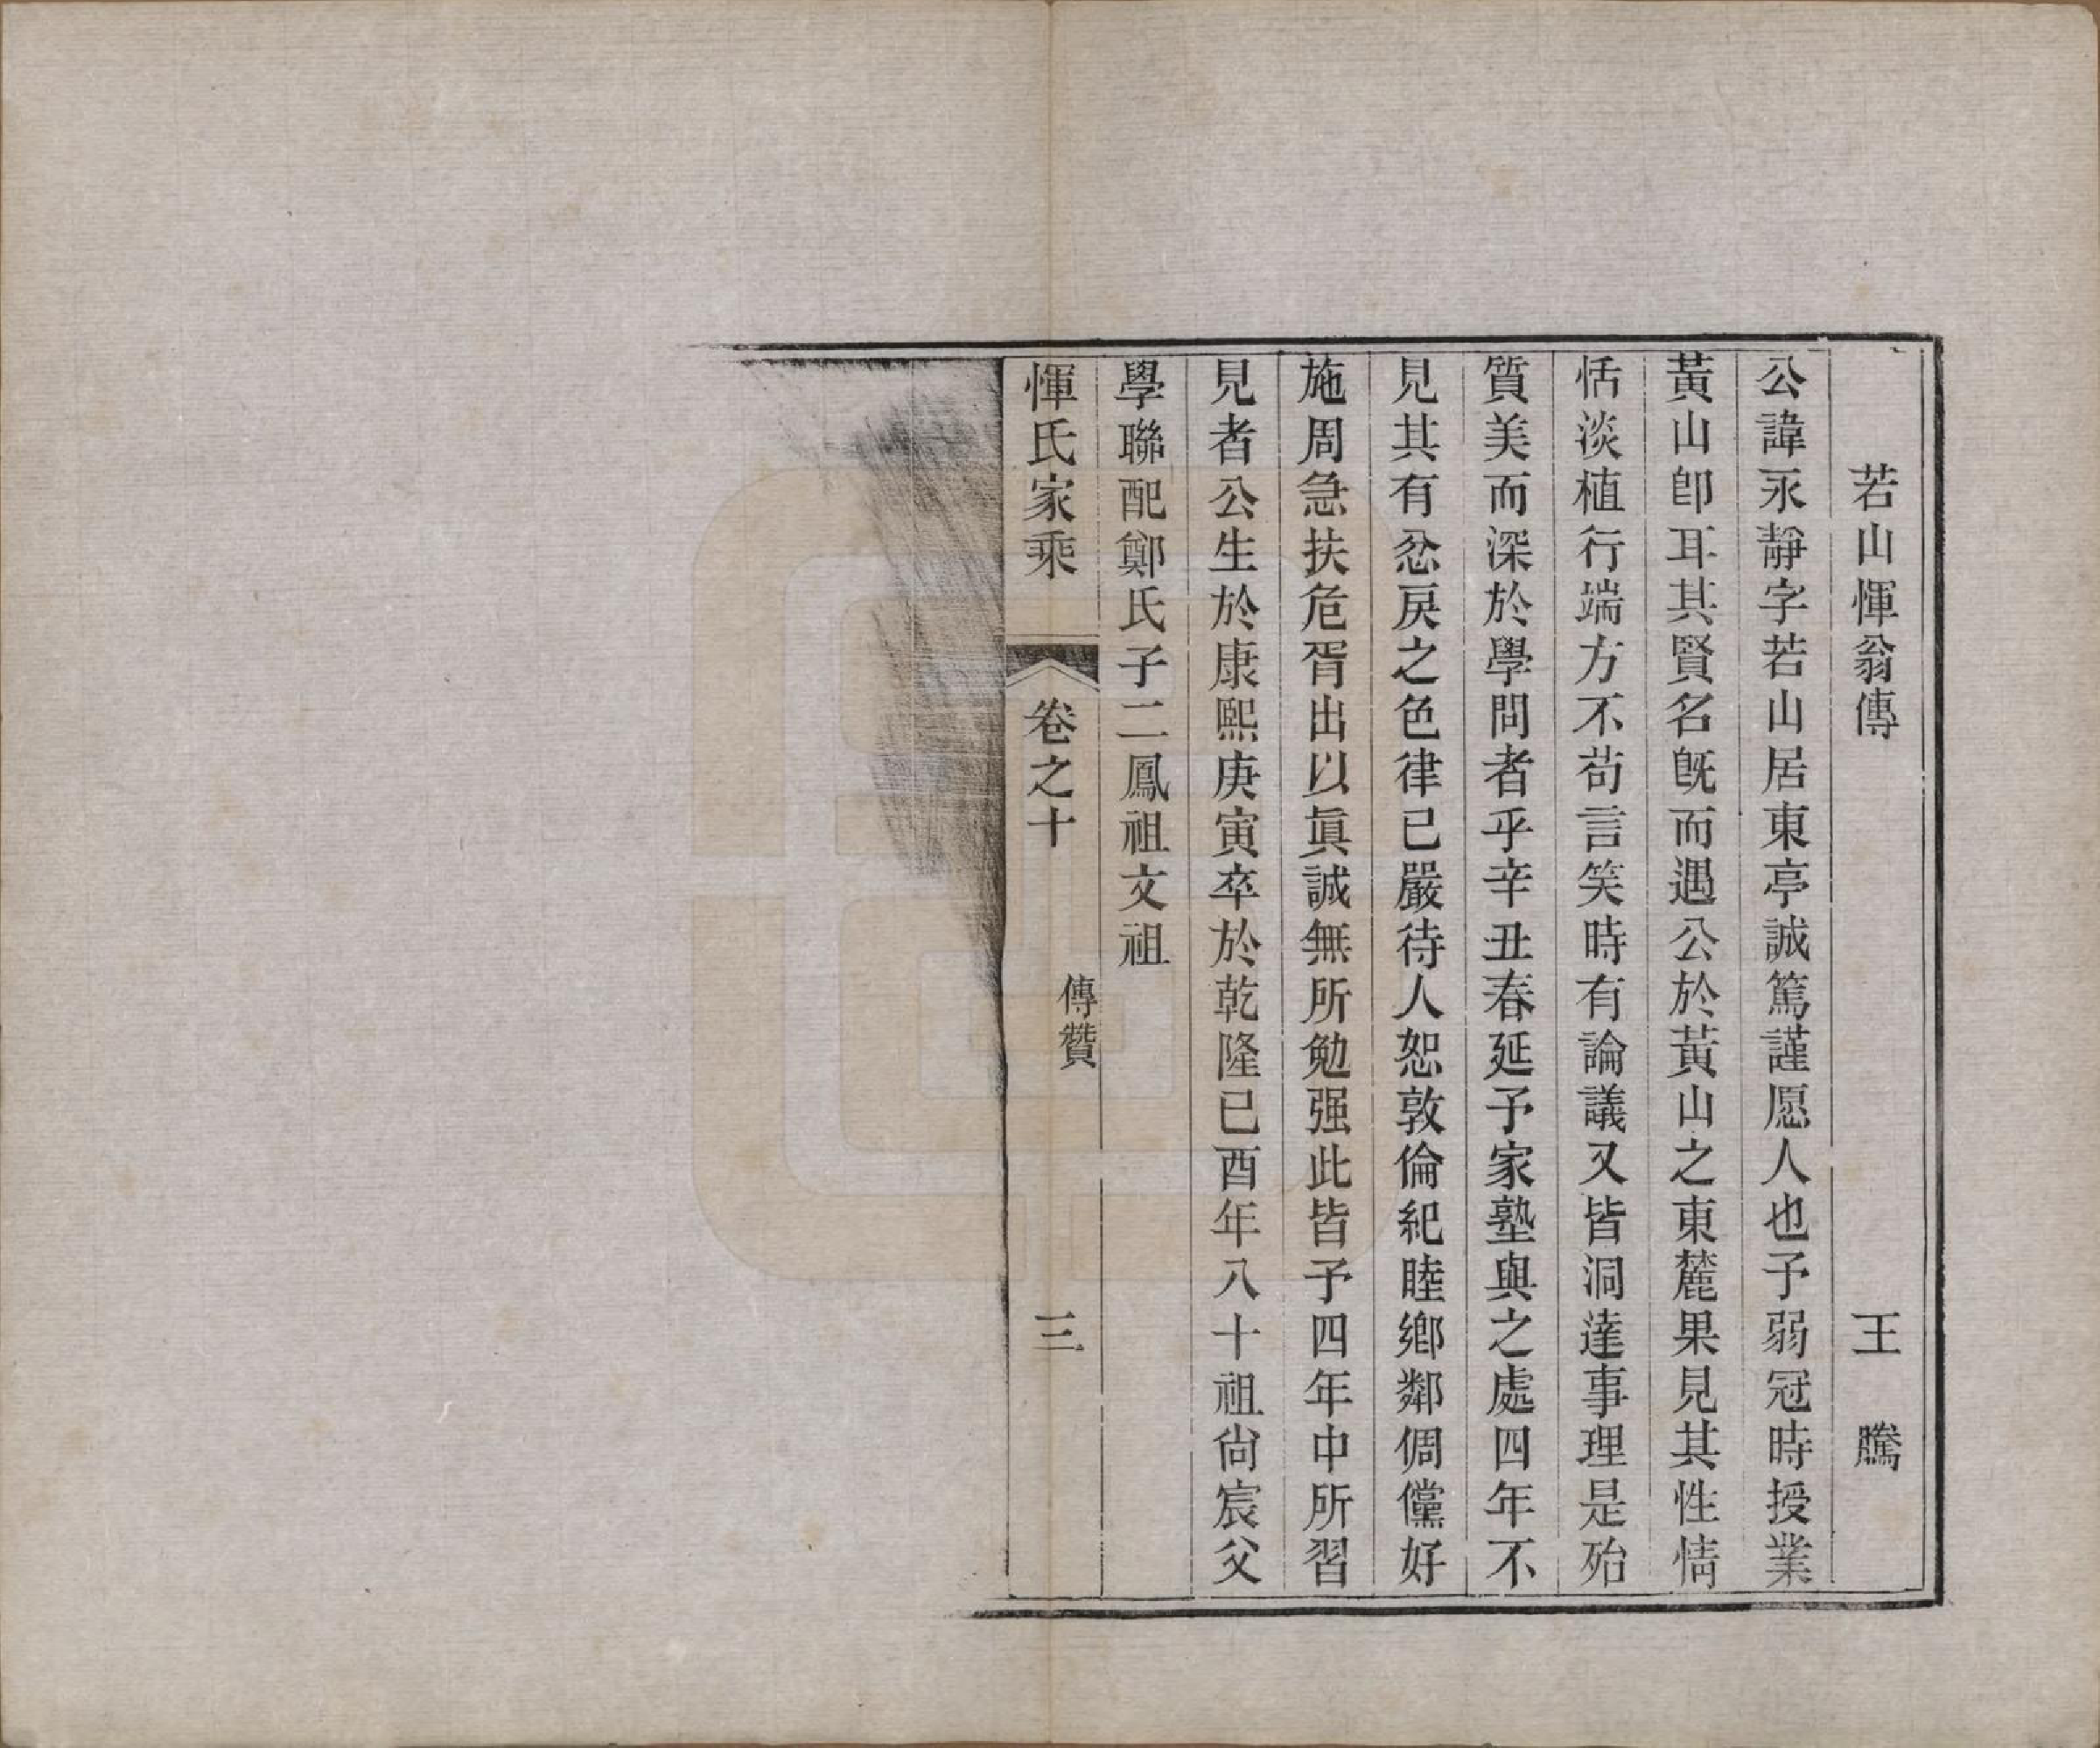 若山惲翁傳　王騰
公諱永靜字若山居東亭誠篤謹愿人也予弱冠時授業
黃山卽耳其賢名旣而遇公於黃山之東麓果見其性情
恬淡植行端方不苟言笑時有論議又皆洞達事理是殆
質美而深於學問者乎辛丑春延予家塾與之處四年不
見其有忿戾之色律已嚴待人恕敦倫紀睦鄉鄰倜儻好
施周急扶危胥出以眞誠無所勉强此皆予四年中所習
見者公生於康熙庚寅卒於乾隆已酉年八十祖尙宸父
學聯配鄭氏子二鳳祖文祖
惲氏家乘　卷之十　傳贊　三